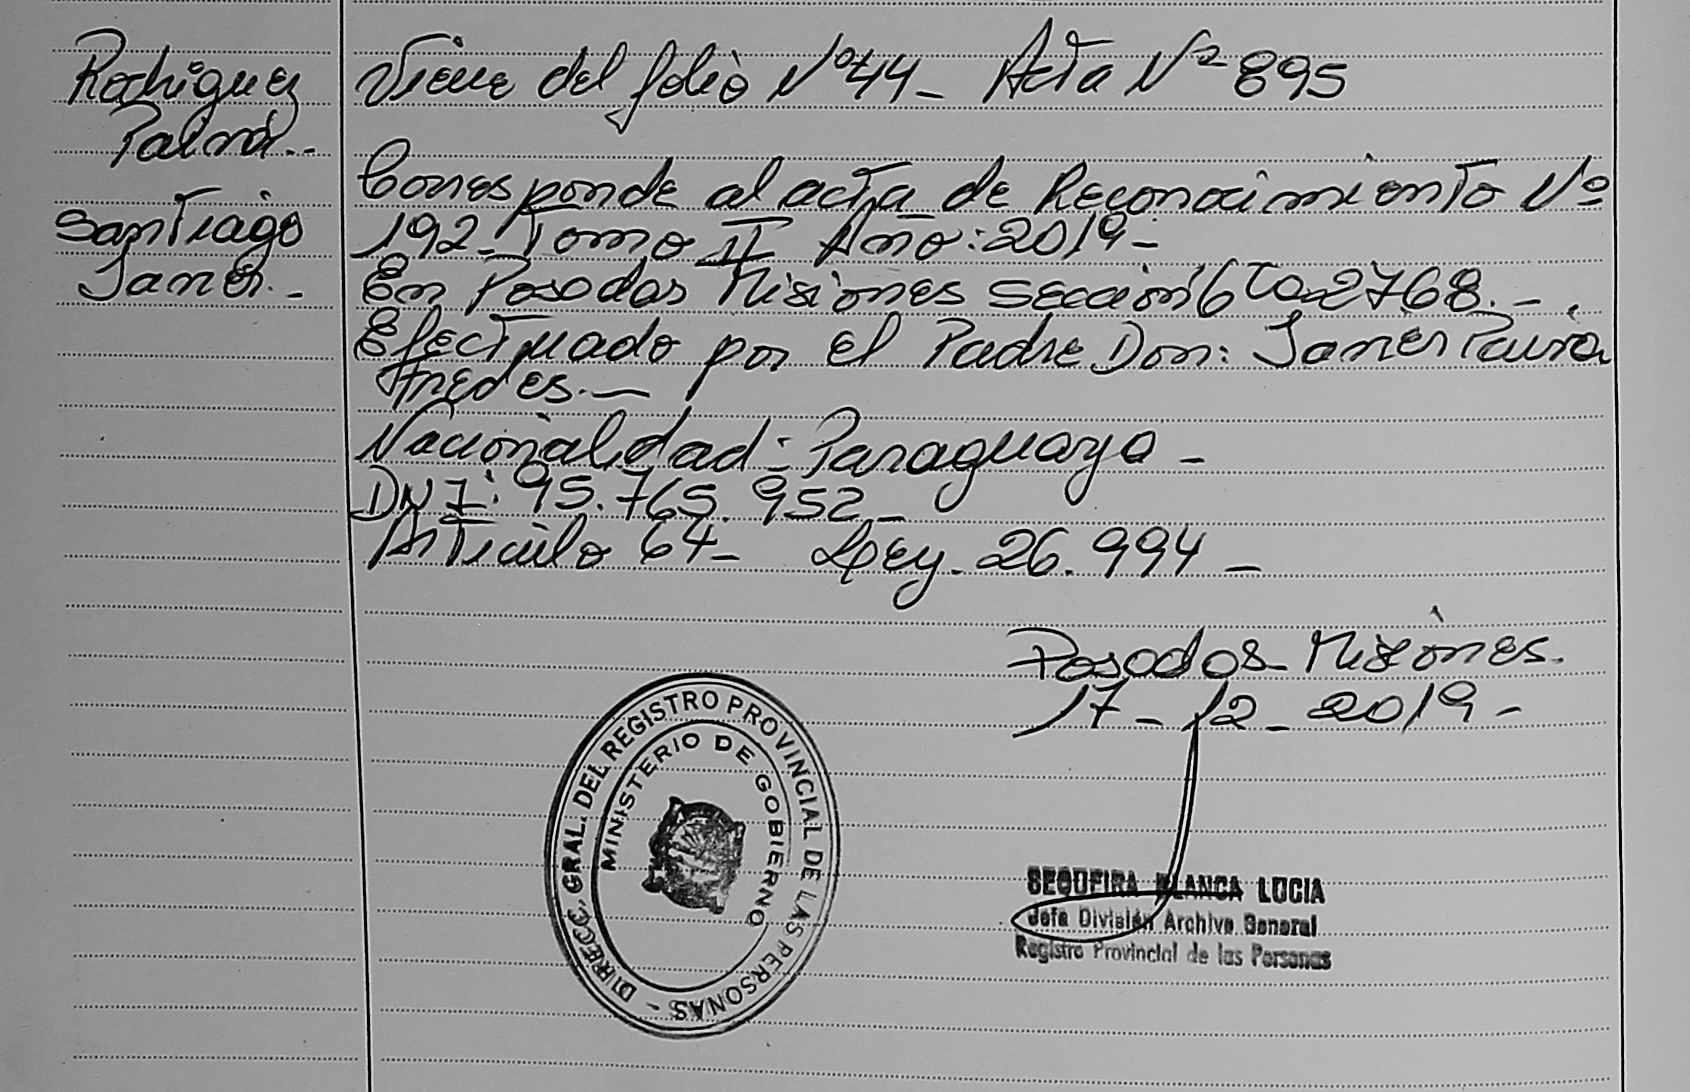 Rodriguez
Palma..
Santiago
Javier.-
Viene del folio Nº 44- Acta Nº 895
Corresponde al acta de Reconocimiento Nº
192- Tomo II Año: 2019-
En Posadas Misiones Sección 6ta 2768.-.
Efectuado por el Padre Don: Javier
Fredes.-
Nacionalidad: Paraguaya-
DNI: 95.765.952-
Articulo 64- Ley. 26.994-
Posadas Misiones.
17-12-2019-
DIRECC. GRAL. DEL REGISTRO PROVINCIAL DE LAS PERSONAS -
MINISTERIO DE GOBIERNO
SEQUEIRA BLANCA LUCIA
Jefa División Archivo General
Registro Provincial de las Personas